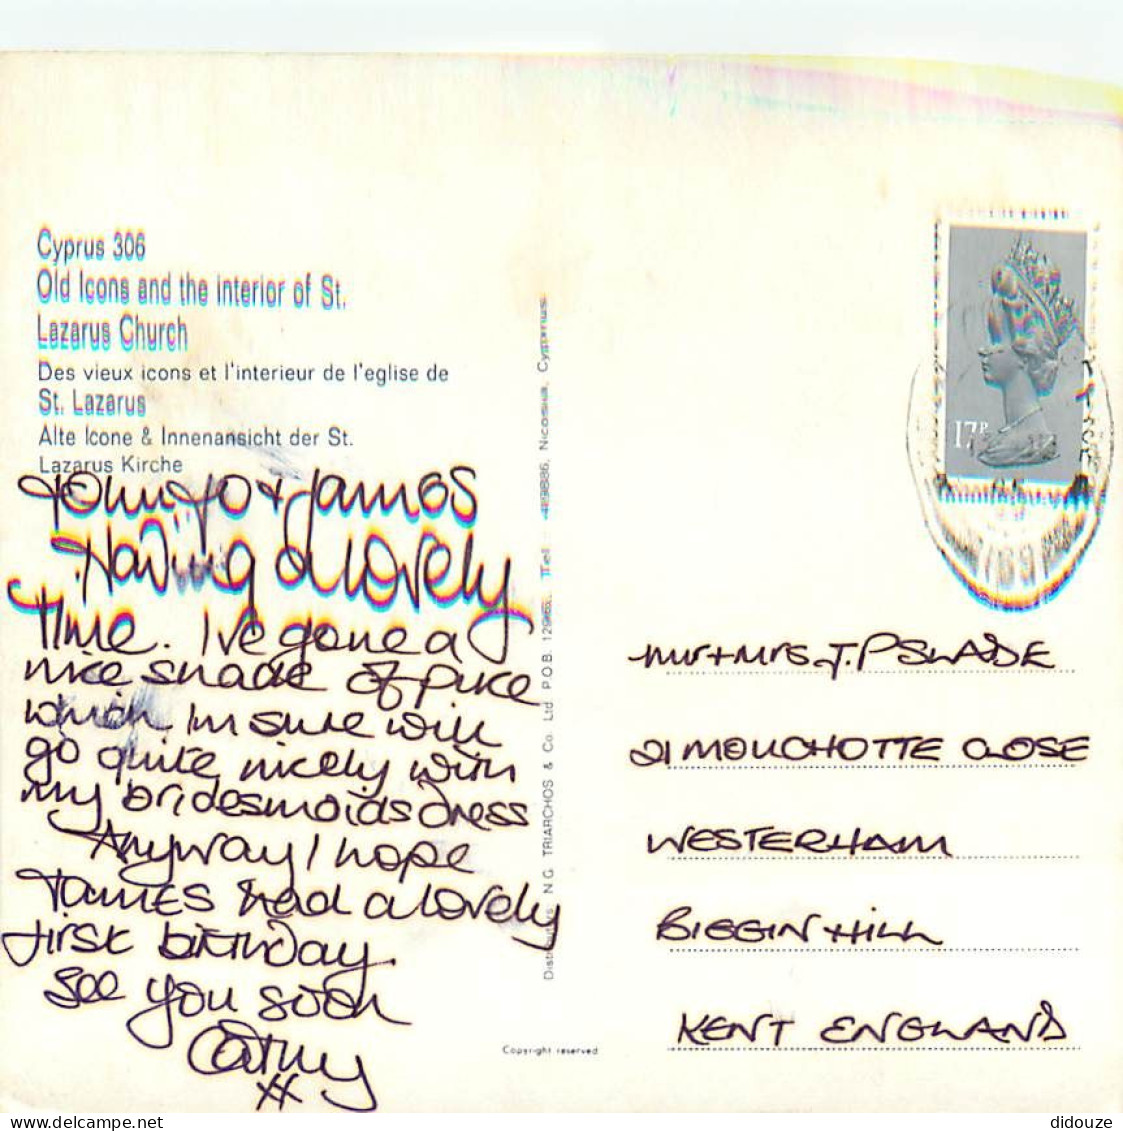 Cyprus 306
Old Icons and the interior of St.
Lazarus Church
Des vieux icons et l'interieur de l'eglise de
St. Lazarus
Alte Icone & Innenansicht der St.
Lazarus Kirche
Jo + James
Having a lovely
time. I've gone a
nice shade of puce
which Im sure will
go quite nicely with
my bridesmaids dress
Anyway I hope
James had a lovely
first birthday.
See you soon
Cathy
xx
N.G. TRIARCHOS & Co. Ltd. P.O.B. Nicosia, Cyprus.
Copyright reserved
17P
Mr + Mrs J.P SLADE
21 MOUCHOTTE CLOSE
WESTERHAM
BIGGIN HILL
KENT ENGLAND
didouze